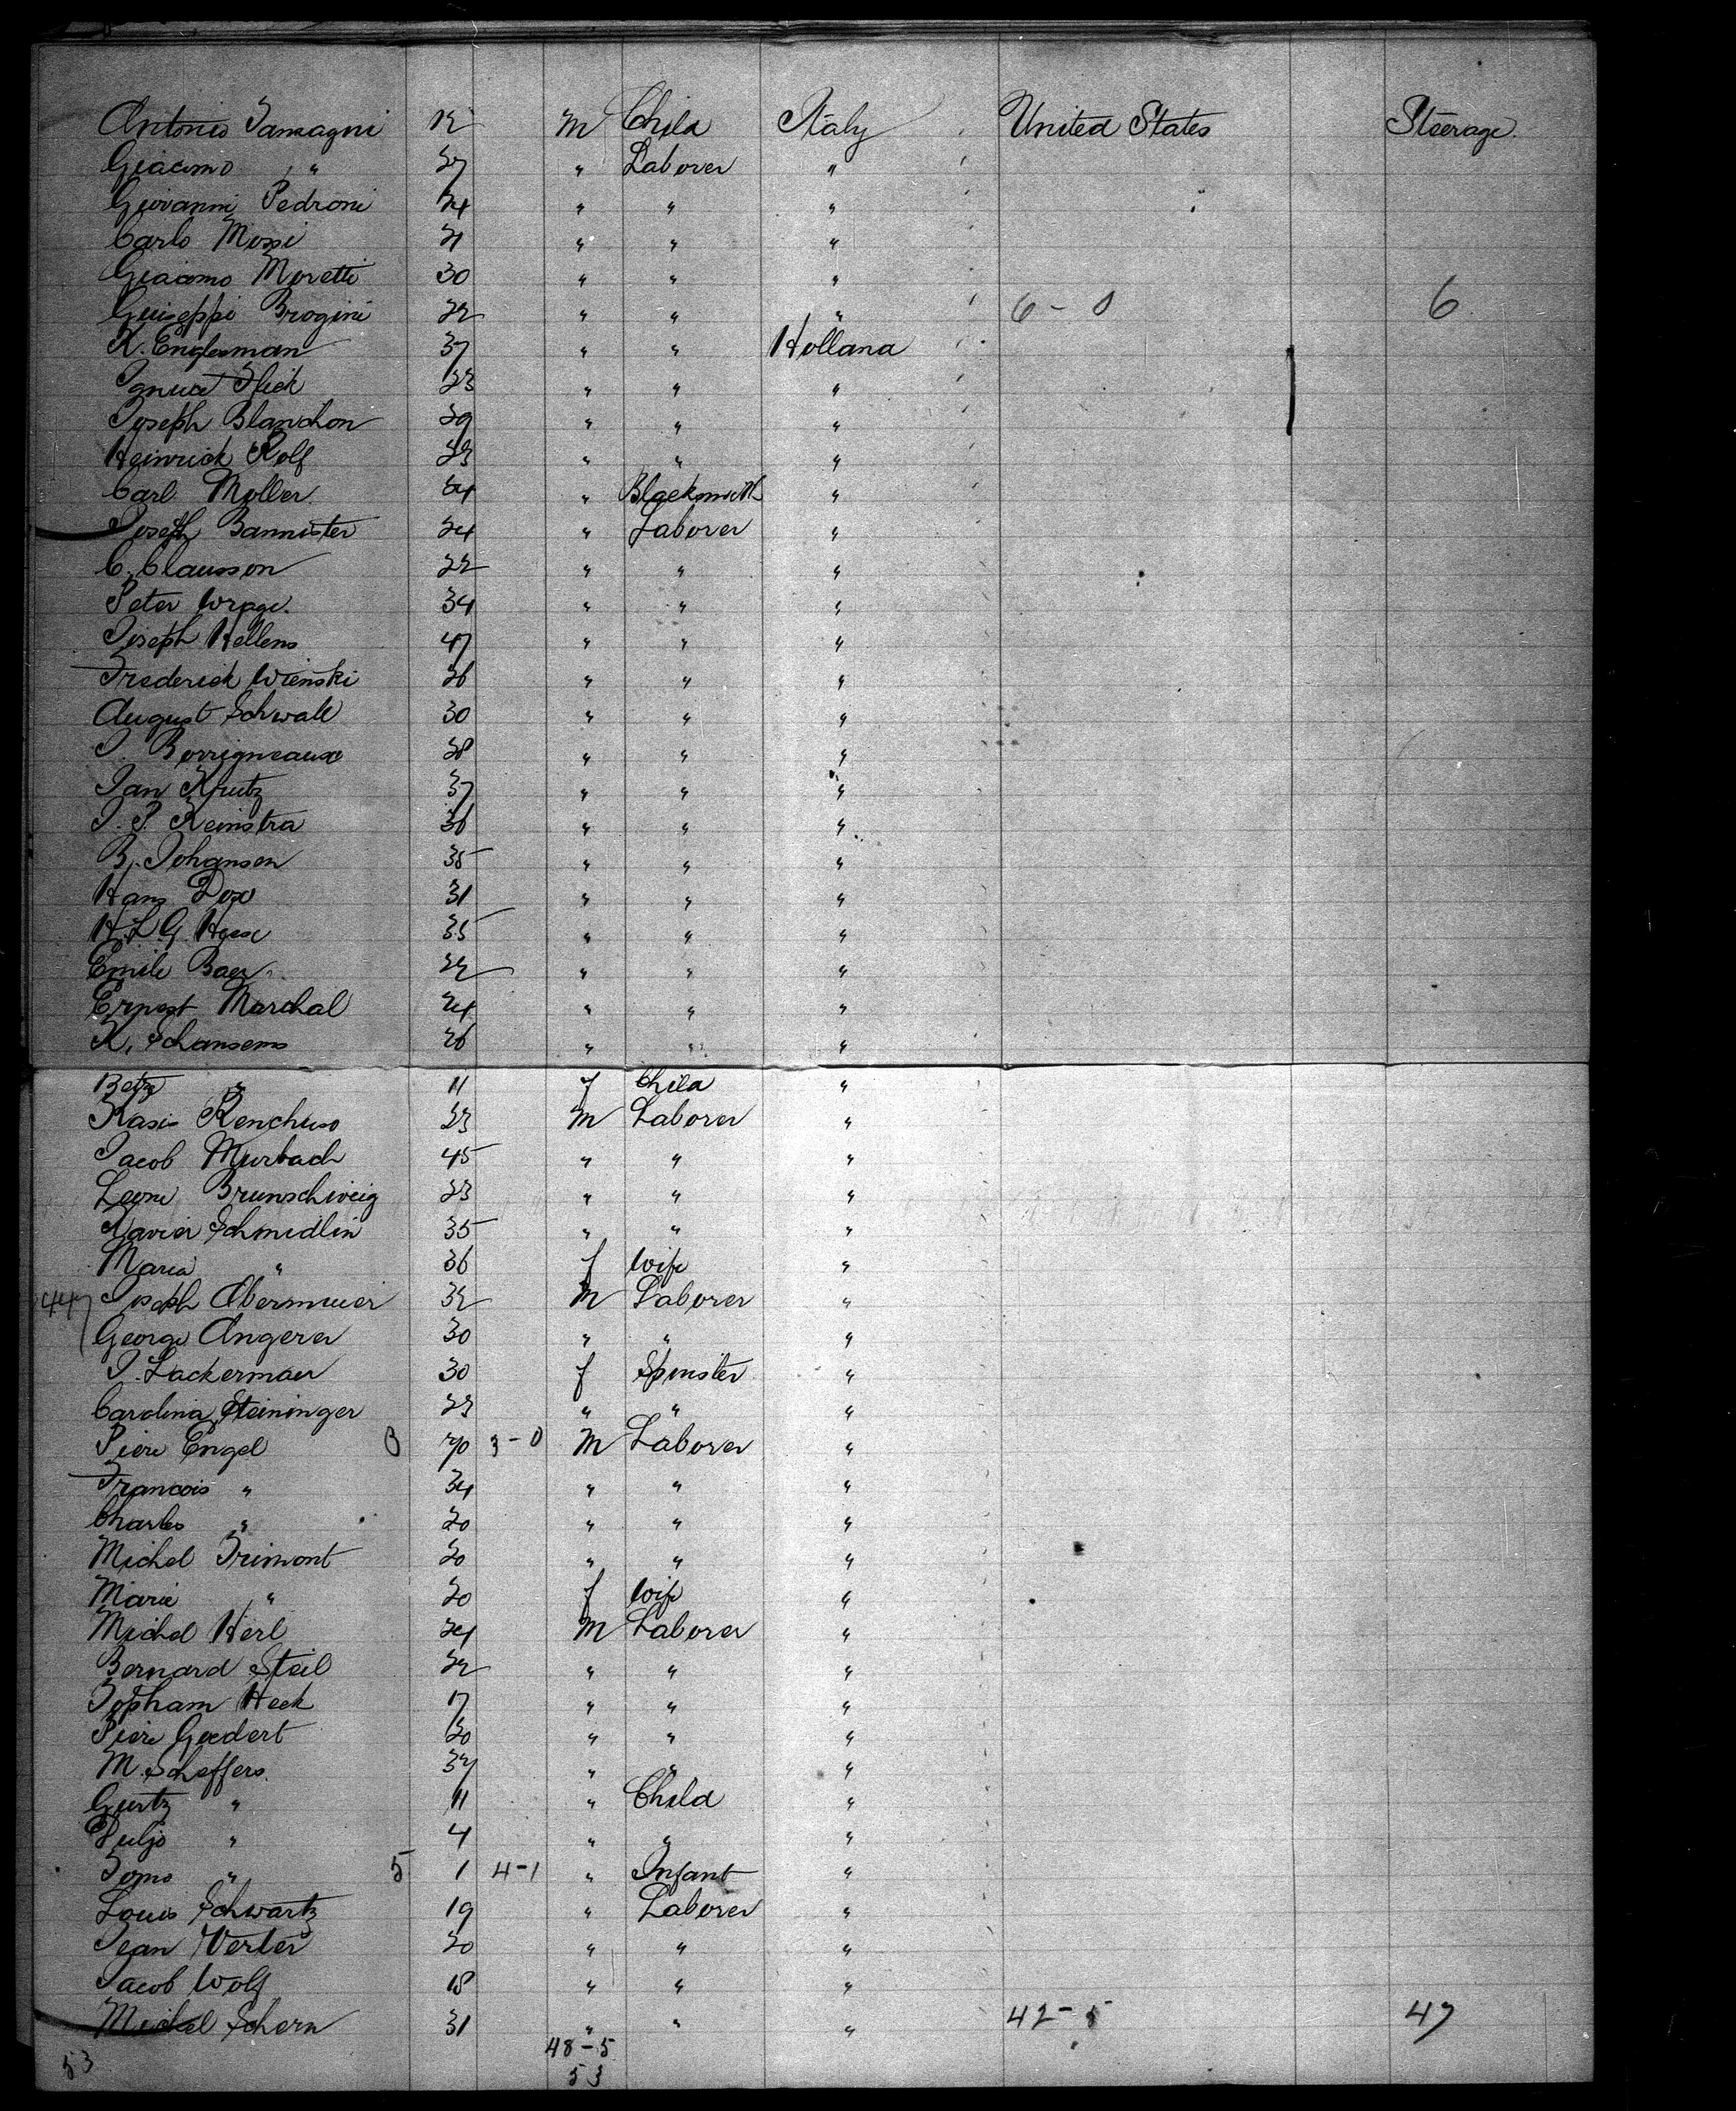 Antonio Tamagni 12 M Child Italy United States Steerage.
Giacomo " 27 " Laborer "
Giovanni Pedroni 24 " " "
Carlo Mossi 21 " " "
Giacomo Moretti 30 " " "
Guiseppi Brogini 22 " " " 6 - 0 6
K. Engleman 37 " " Holland
Flick 23 " " "
Joseph Blanchon 29 " " "
Heinrich Rolf 23 " " "
Carl Moller 24 " Blacksmith "
Joseph Bannister 24 " Laborer "
C. Clausson 22 " " "
Peter Wrage. 34 " " "
Joseph Hellens 47 " " "
Frederick Wienski 26 " " "
August Schwall 30 " " "
J. Borrigneaux 28 " " "
Jan Krutz 37 " " "
J. P. Reinstra 36 " " "
B. Johansen 35 " " "
Hans Dox 31 " " "
H. L. G. 35 " " "
Emile Baer 22 " " "
Ernest Marchal 24 " " "
K. Schansems 26 " " "
Betz " 11 f Child "
Kasis 23 M Laborer "
Jacob Murbach 45 " " "
Leone Brunschweig 23 " " "
Xavier Schmidlin 35 " " "
Maria " 36 f Wife "
447 Joseph Obermeier 32 M Laborer "
George Angerer 30 " " "
J. Lackermaer 30 f Spinster "
Carolina Steininger 23 " " "
Piere Engel 3 70 3 - 0 M Laborer "
Francois " 34 " " "
Charles " 20 " " "
Michel Trimont 20 " " "
Marie " 20 f Wife "
Michel Herl 24 M Laborer "
Bernard Steil 22 " " "
Topham Heck 17 " " "
Piere Goedert 20 " " "
M. Scheffers. 37 " " "
Gurtz " 11 " Child "
Luljo " 4 " " "
Tomo " 5 1 4-1 " Infant "
Louis Schwartz 19 " Laborer "
Jean Verter 20 " " "
Jacob Wolf 18 " " "
Michel Schern 31 " " " 42 - 5 47
48 - 5
53 53